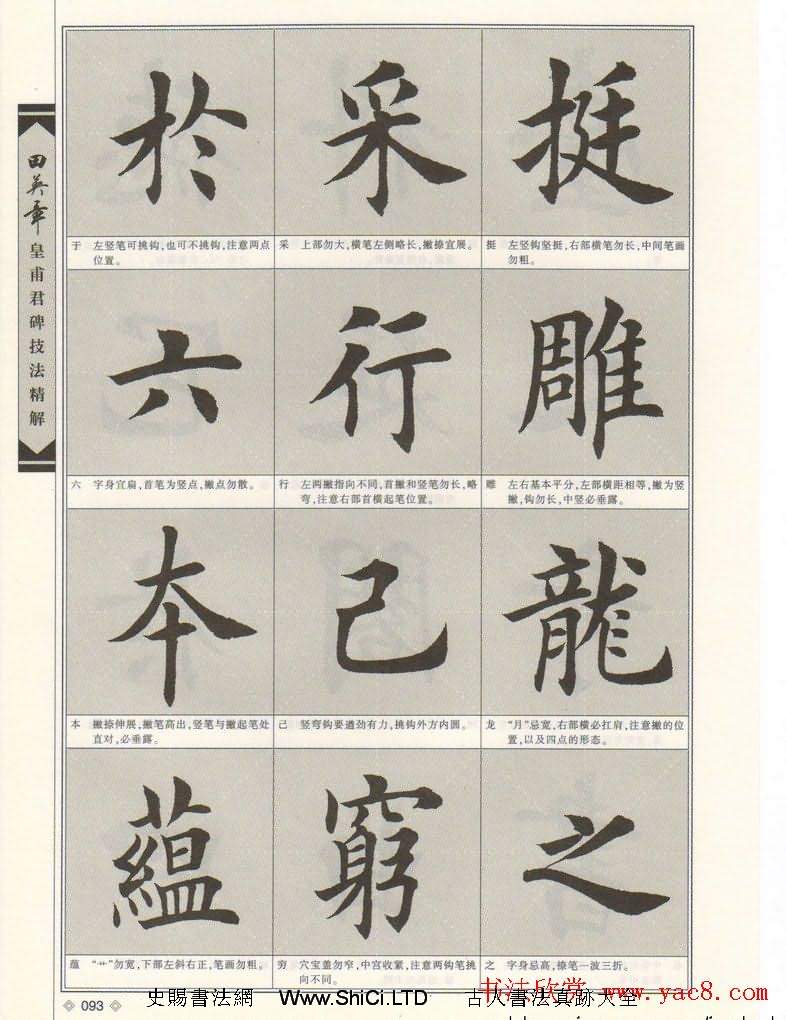 田英章
皇甫君碑技法精解
挺
挺 左竖钩坚挺,右部横笔勿长,中间笔画
勿粗。
雕
雕 左右基本平分,左部横距相等,撇为竖
撇,钩勿长,中竖必垂露。
龍
龙 “月”忌宽,右部横必扛肩,注意撇的位
置,以及四点的形态。
之
之 字身忌高,捺笔一波三折。
采
采 上部勿大,横笔左侧略长,撇捺宜展。
行
行 左两撇指向不同,首撇和竖笔勿长,略
弯,注意右部首横起笔位置。
己
己 竖弯钩要遒劲有力,挑钩外方内圆。
窮
穷 穴宝盖勿窄,中宫收紧,注意两钩笔挑
向不同。
於
于 左竖笔可挑钩,也可不挑钩,注意两点
位置。
六
六 字身宜扁,首笔为竖点,撇点勿散。
本
本 撇捺伸展,撇笔高出,竖笔与撇起笔处
直对,必垂露。
蘊
蕴 “艹”勿宽,下部左斜右正,笔画勿粗。
093
史賜書法網 Www.ShiCi.LTD 古人書法真跡大全
书法欣赏 www.yac8.com